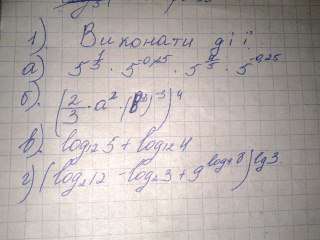 1). Виконати дії:
а) 5^{1/3} · 5^{-0,25} · 5^{2/3} · 5^{-0,25}
б). (2/3 · a² · (b²)^{-3})^4
в). log₁₂5 + log₁₂4
г) (log₂12 - log₂3 + 9^{log₉8})^{lg3}